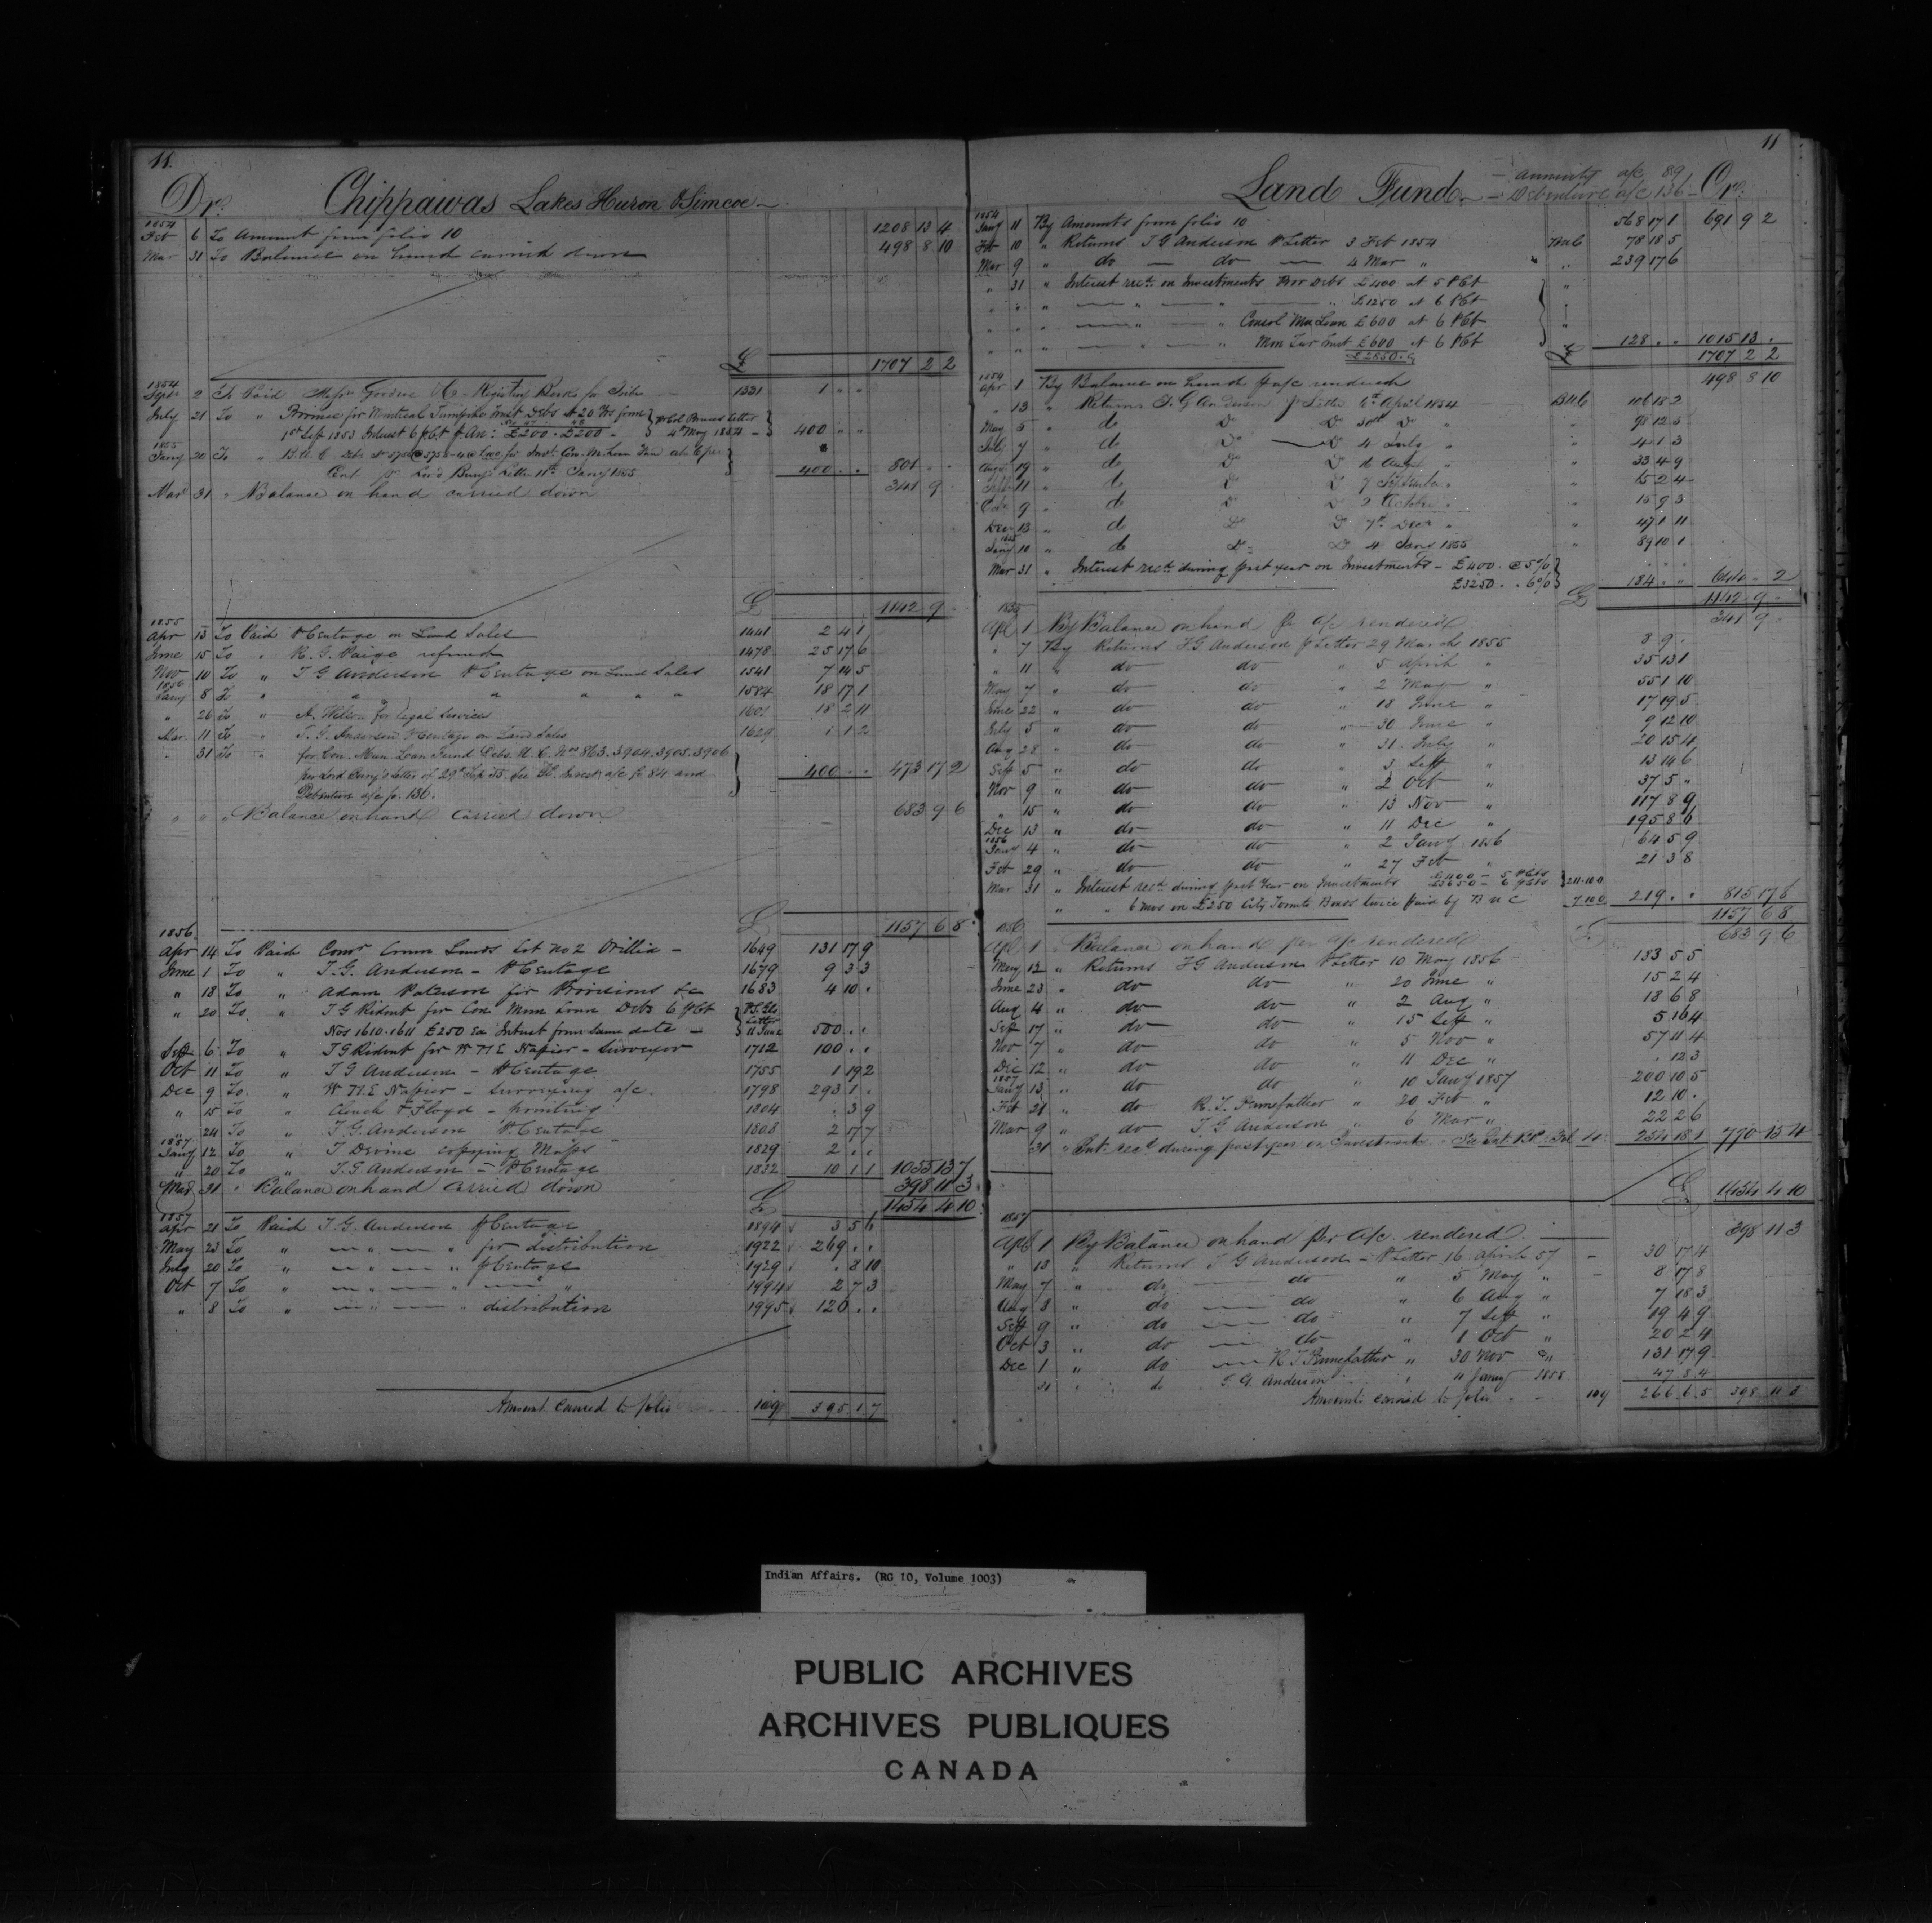 11.
Dr. Chippawas Lakes Huron & Simcoe
1854
Feb 6 To Amount from folio 10 1208 13 4
Mar 31 To Balance on hand carried down 498 8 10
£ 1707 2 2
1854
Septr 2 To Paid Messrs Gordon Registry Books for Indn 1331 1 " "
July 21 To " Province for Montreal Turnpike Trust Debs at 20 Yrs from } Col Bruces Letter
1st Sep 1853 Interest 6 P Ct P An: £200 . £200 } 4th May 1854 400 " "
1855
Jany 20 To " B.U.C Debs for Invt Con. M. Loan Fund at 6 per
Cent pr Lord Burys Letter 11th Jany 1855 400 . . 801 . .
Mar 31 " Balance on hand carried down 341 9 .
£ 1142 9 .
1855
Apr 13 To Paid P Centage on Land Sales 1441 2 4 1
June 15 To " R. G. Paige refund 1478 25 17 6
Nov 10 To " T G Anderson P Centage on Land Sales 1541 7 14 5
1856
Jany 8 To " " " " " " 1584 18 17 1
" 26 To " A. Wilson for legal Services 1601 18 2 11
Mar. 11 To " T. G. Anderson P Centage on Land Sales 1629 1 1 2
" 31 To " for Con. Mun. Loan Fund Debs. U. C. Nos 863. 3904. 3905. 3906
per Lord Bury's Letter of 29th Sep 55. See Invest a/c fo 84 and 400 . . 473 17 2
Debenture a/c fo. 136.
" " " Balance on hand carried down 683 9 6
£ 1157 6 8
1856
Apr 14 To Paid Comr Crown Lands Lot No 2 Orillia 1649 131 17 9
June 1 To " T. G. Anderson - P Centage 1679 9 3 3
" 13 To " Adam Paterson for Provisions &c 1683 4 10 "
" 20 To " T G Ridout for Con Mun Loan Debs 6 P Ct } Letter
Nos 1610-1611 £250 Ea Interest from same date 11 June 500 . .
Sept 6 To " T G Ridout for W M E Napier - Surveyor 1712 100 . .
Oct 11 To " T G Anderson - P Centage 1755 1 19 2
Dec 9 To " W M. E Napier - Surveying a/c. 1798 293 1 .
" 15 To " Clench & Floyd - printing 1804 . 3 9
" 24 To " T. G. Anderson P Centage 1808 2 17 7
1857
Jany 12 To " T Devine copying Maps 1829 2 . .
" 20 To " T. G. Anderson - P Centage 1832 10 1 1 1055 13 7
Mar 31 " Balance on hand carried down 398 11 3
£ 1454 4 10
1857
Apr 21 To Paid T. G. Anderson P Centage 1894 3 5 6
May 23 To " " " for distribution 1922 269 . .
July 20 To " " " P Centage 1929 . 8 10
Oct 7 To " " " " 1994 2 7 3
" 8 To " " " distribution 1995 120 . .
Amount carried to folio 109 395 1 7
11
Land Fund - Annuity a/c 89 - Debenture a/c 136 - Cr.
1854
Jany 11 By Amounts from folio 10 568 17 1 691 9 2
Feb 10 " Returns T G Anderson P Letter 3 Feb 1854 BUC 78 18 5
Mar 9 " do do 4 Mar " " 239 17 6
" 31 " Interest recd on Investments Prov Debs £400 at 5 P Ct "
" " " £1250 at 6 P Ct "
" " " Consol Mun Loan £600 at 6 P Ct "
" " " Mon Tur Trust £600 at 6 P Ct 128 . . 1015 13 .
£2850 £ 1707 2 2
1854
Apr 1 By Balance on hand P a/c rendered 498 8 10
" 13 " Returns T. G Anderson P Letter April 1854 BUC 106 18 2
May 5 " do Do Do " 98 12 5
July 7 " do Do Do 4 July " " 4 1 3
Augt 19 " do Do Do Augt " 33 4 9
Sept 11 " do Do Do 7 September " 15 2 4
Octr 9 " do Do Do 2 October " 15 9 3
Decr 13 " do Do Do 7th Decr " " 47 1 11
1855
Jany 10 " do Do Do 4 Jany 1855 " 89 10 1
Mar 31 " Interest recd during past year on Investments - £400 @ 5 %
£3250 . . 6 % 184 . . 644 . 2
£ 1142 9 .
1855
Apl 1 By Balance on hand Pr a/c rendered 341 9 .
" 7 By Returns T G Anderson P Letter 29 March 1855 8 9 .
" 11 " do do " 5 April " 35 13 1
May 7 " do do " 2 May " 55 1 10
June 22 " do do " 18 June " 17 19 5
July 5 " do do " 30 June " 9 12 10
Aug 28 " do do " 31 July " 20 15 4
Sept 5 " do do " 3 Sept " 13 14 6
Nov 9 " do do " 2 Oct " 37 5 "
" 15 " do do " 13 Nov " 117 8 9
Dec 13 " do do " 11 Dec " 195 8 6
1856
Jany 4 " do do " 2 Jany 1856 64 5 9
Feb 29 " do do " 27 Feb " 21 3 8
Mar 31 " Interest recd during past Year on Investments £400 - 5 P Cts £3650 - 6 P Cts } 211.10.0
" " 6 mos on £250 City Toronto Bonds twice paid by B U C 7.10.0 219 . . 815 17 8
1157 6 8
1856
Apl 1 " Balance on hand per a/c rendered £ 683 9 6
May 12 " Returns T G Anderson P Letter 10 May 1856 183 5 5
June 23 " do do " 20 June " 15 2 4
Aug 4 " do do " 2 Aug " 18 6 8
Sept 17 " do do " 15 Sept " 5 16 4
Nov 7 " do do " 5 Nov " 57 11 4
Dec 12 " do do " 11 Dec " . 12 3
1857
Jany 13 " do do " 10 Jany 1857 200 10 5
Feb 21 " do R. T. Pennefather " 20 Feb " 12 10 .
Mar 9 " do T G Anderson " 6 Mar " 22 2 6
31 " Int. recd during past year on Investments 254 18 1 770 15 4
£ 1454 4 10
1857
Apl 1 By Balance on hand per A/c. rendered 398 11 3
" 18 " Returns T G Anderson - P Letter 16 April 57 30 17 4
May 7 " do do " 5 May " 8 17 8
Aug 8 " do do " 6 Aug " 7 18 3
Sept 9 " do do " 7 Sept " 19 4 9
Oct 3 " do do " 1 Oct " 20 2 4
Dec 1 " do R T Pennefather " 30 Nov " 131 17 9
31 " do T. G. Anderson " 11 Jany 1858 47 8 4
Amounts carried to folio 109 266 6 5 398 11 3
Indian Affairs. (RG 10, Volume 1003)
PUBLIC ARCHIVES
ARCHIVES PUBLIQUES
CANADA